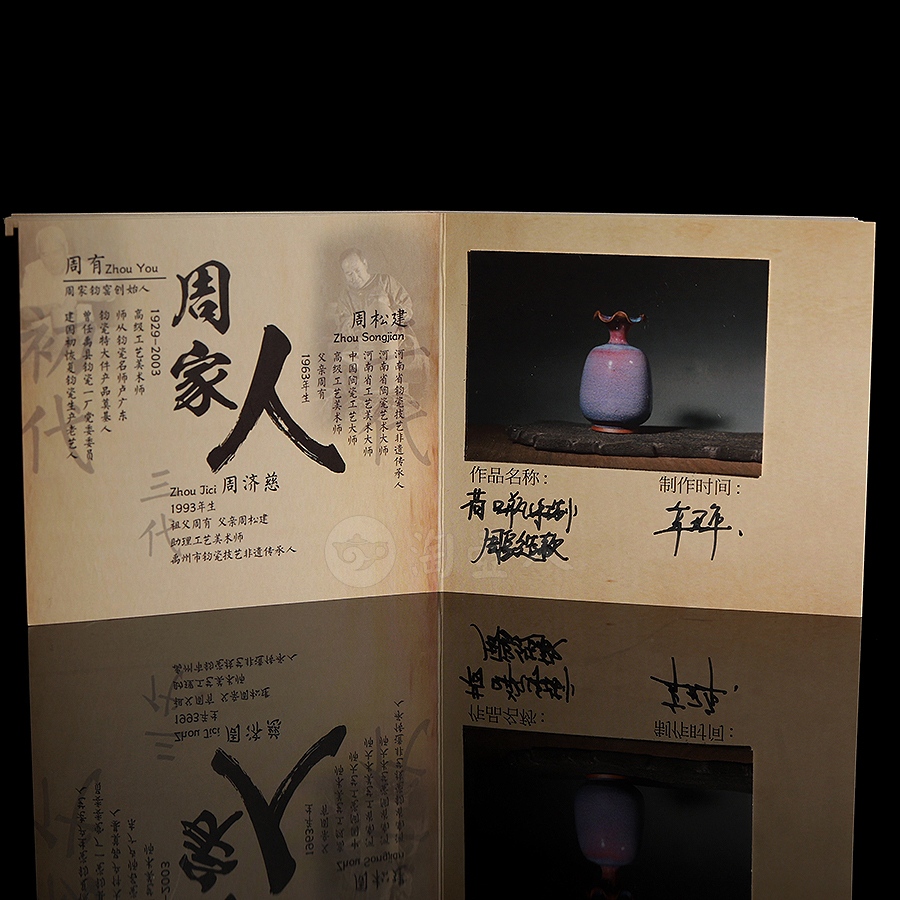 周有 Zhou You
周家钧窑创始人
1929-2003
高级工艺美术师
师从钧瓷名师卢广东
钧瓷特大件产品奠基人
曾任禹县钧瓷一厂党委委员
建国初恢复钧瓷生产老艺人
初代
周家人
周松建
Zhou Songjian
河南省钧瓷技艺非遗传承人
河南省陶瓷艺术大师
河南省工艺美术大师
中国陶瓷工艺大师
高级工艺美术师
父亲周有
1963年生
三代
Zhou Jici 周济慈
1993年生
祖父周有 父亲周松建
助理工艺美术师
禹州市钧瓷技艺非遗传承人
作品名称：
制作时间：